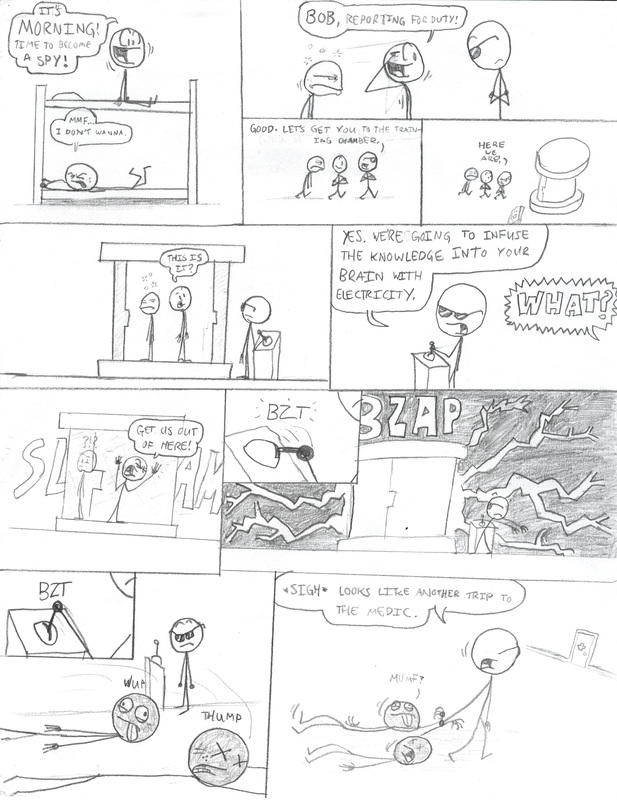 IT'S
MORNING!
TIME TO BECOME
A SPY!
MMF...
I DON'T WANNA.
BOB, REPORTING FOR DUTY!
GOOD. LET'S GET YOU TO THE TRAIN-
ING CHAMBER.
HERE
WE
ARE.
THIS IS
IT?
YES. WE'RE GOING TO INFUSE
THE KNOWLEDGE INTO YOUR
BRAIN WITH
ELECTRICITY.
WHAT?
SLAM
?!?
GET US OUT
OF HERE!
BZT
BZAP
BZT
WUP
THUMP
*SIGH* LOOKS LIKE ANOTHER TRIP TO
THE MEDIC.
MUMF?